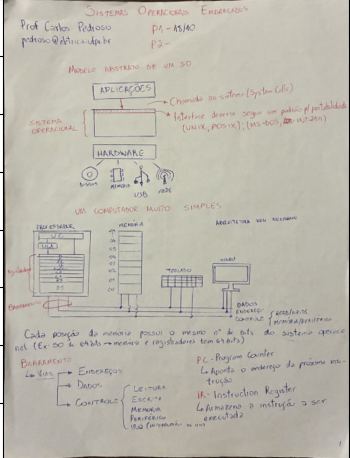 SISTEMAS OPERACIONAIS EMBARCADOS
Prof Carlos Pedroso
P1 - 18/10
P2 -
MODELO ABSTRATO DE UM SO
APLICAÇÕES
Chamada ao sistema (System Calls)
SISTEMA OPERACIONAL
Interface deveria seguir um padrão p/ portabilidade
(UNIX, POSIX); (MS-DOS,
HARDWARE
DISCOS
MEMÓRIA
USB
REDE
UM COMPUTADOR MUITO SIMPLES
PROCESSADOR
MEMÓRIA
ARQUITETURA VON NEUMANN
UC
ULA
TECLADO
Barramento
DADOS
ENDEREÇO
CONTROLE
READ/WRITE
MEMÓRIA/PERIFÉRICO
Cada posição da memória possui o mesmo nº de bits do sistema operacio-
nal (Ex: SO de 64 bits → memória e registradores tem 64 bits)
BARRAMENTO
Vias
ENDEREÇOS
DADOS
CONTROLE
LEITURA
ESCRITA
MEMÓRIA
PERIFÉRICO
IRQ
PC - Program Counter
Aponta o endereço da próxima ins-
trução
IR - Instruction Register
Armazena a instrução a ser
executada